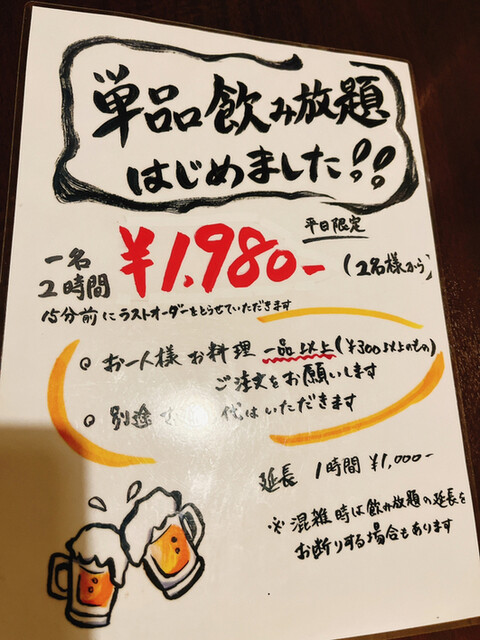 単品飲み放題
はじめました!!
平日限定
一名
2時間 ¥1,980- (2名様から)
15分前にラストオーダーをとらせていただきます
お一人様 お料理 一品以上(¥300以上のもの)
ご注文をお願いします
別途 代はいただきます
延長 1時間 ¥1,000-
※混雑時は飲み放題の延長を
お断りする場合もあります